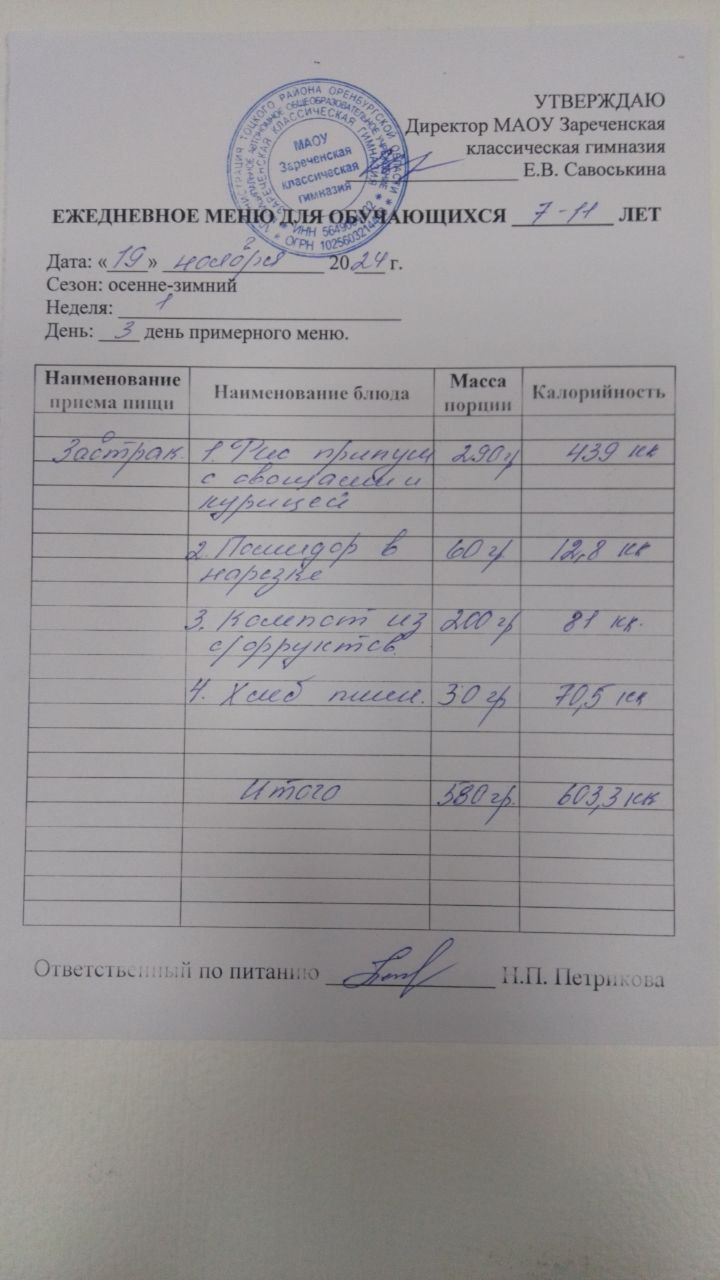 УТВЕРЖДАЮ
Директор МАОУ Зареченская
классическая гимназия
Е.В. Савоськина
МАОУ
Зареченская
классическая
гимназия
ЕЖЕДНЕВНОЕ МЕНЮ ДЛЯ ОБУЧАЮЩИХСЯ 7-11 ЛЕТ
Дата: «19» ноября 2024 г.
Сезон: осенне-зимний
Неделя: 1
День: 3 день примерного меню.
Наименование приема пищи Наименование блюда Масса порции Калорийность
Завтрак. 1. Рис припущ 290 г 439 кк
с овощами и
курицей
2. Помидор в 60 гр 12,8 кк
нарезке
3. Компот из 200 гр 81 кк.
с/фруктов.
4. Хлеб пшен. 30 гр 70,5 кк
Итого 580 гр. 603,3 кк
Ответственный по питанию Н.П. Петрикова